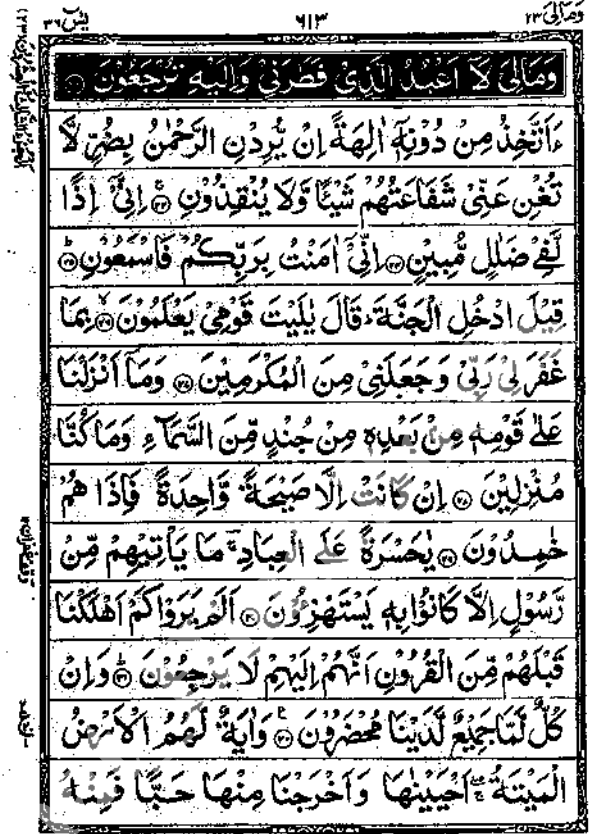 وَمَالِیَ ٢٣
٦١٣
یٰسٓ ٣٦
وَمَالِیَ لَاۤ اَعْبُدُ الَّذِیْ فَطَرَنِیْ وَاِلَیْهِ تُرْجَعُوْنَ
ءَاَتَّخِذُ مِنْ دُوْنِهٖۤ اٰلِهَةً اِنْ یُّرِدْنِ الرَّحْمٰنُ بِضُرٍّ لَّا
تُغْنِ عَنِّیْ شَفَاعَتُهُمْ شَیْـًٔا وَّلَا یُنْقِذُوْنِ ۝۲۳ اِنِّیْۤ اِذًا
لَّفِیْ ضَلٰلٍ مُّبِیْنٍ ۝۲۴ اِنِّیْۤ اٰمَنْتُ بِرَبِّكُمْ فَاسْمَعُوْنِ ۝۲۵ؕ
قِیْلَ ادْخُلِ الْجَنَّةَ ؕ قَالَ یٰلَیْتَ قَوْمِیْ یَعْلَمُوْنَ ۝۲۶ۙ بِمَا
غَفَرَ لِیْ رَبِّیْ وَجَعَلَنِیْ مِنَ الْمُكْرَمِیْنَ ۝۲۷ وَمَاۤ اَنْزَلْنَا
عَلٰی قَوْمِهٖ مِنْۢ بَعْدِهٖ مِنْ جُنْدٍ مِّنَ السَّمَآءِ وَمَا كُنَّا
مُنْزِلِیْنَ ۝۲۸ اِنْ كَانَتْ اِلَّا صَیْحَةً وَّاحِدَةً فَاِذَا هُمْ
خٰمِدُوْنَ ۝۲۹ یٰحَسْرَةً عَلَی الْعِبَادِ ۚ مَا یَاْتِیْهِمْ مِّنْ
رَّسُوْلٍ اِلَّا كَانُوْا بِهٖ یَسْتَهْزِءُوْنَ ۝۳۰ اَلَمْ یَرَوْا كَمْ اَهْلَكْنَا
قَبْلَهُمْ مِّنَ الْقُرُوْنِ اَنَّهُمْ اِلَیْهِمْ لَا یَرْجِعُوْنَ ۝۳۱ؕ وَاِنْ
كُلٌّ لَّمَّا جَمِیْعٌ لَّدَیْنَا مُحْضَرُوْنَ ۝۳۲ وَاٰیَةٌ لَّهُمُ الْاَرْضُ
الْمَیْتَةُ ۖۚ اَحْیَیْنٰهَا وَاَخْرَجْنَا مِنْهَا حَبًّا فَمِنْهُ